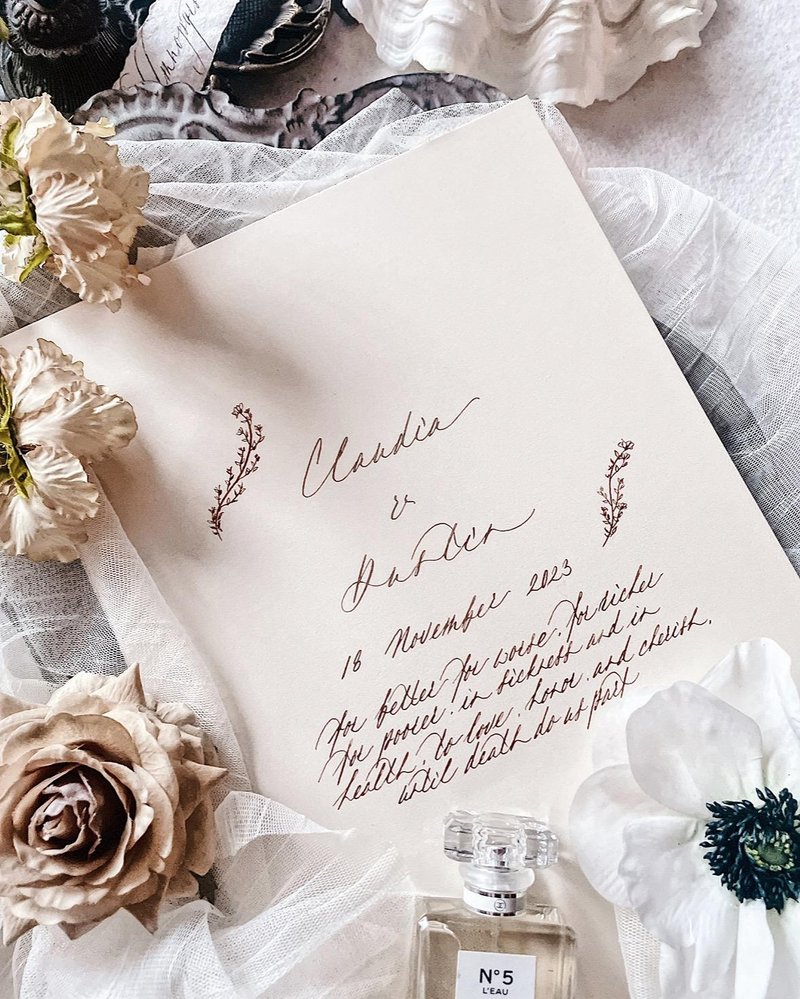 Claudia
&
Dustin
18 November 2023
For better for worse, for richer
for poorer, in sickness and in
health, to love, honor and cherish,
until death do us part
N°5
L'EAU